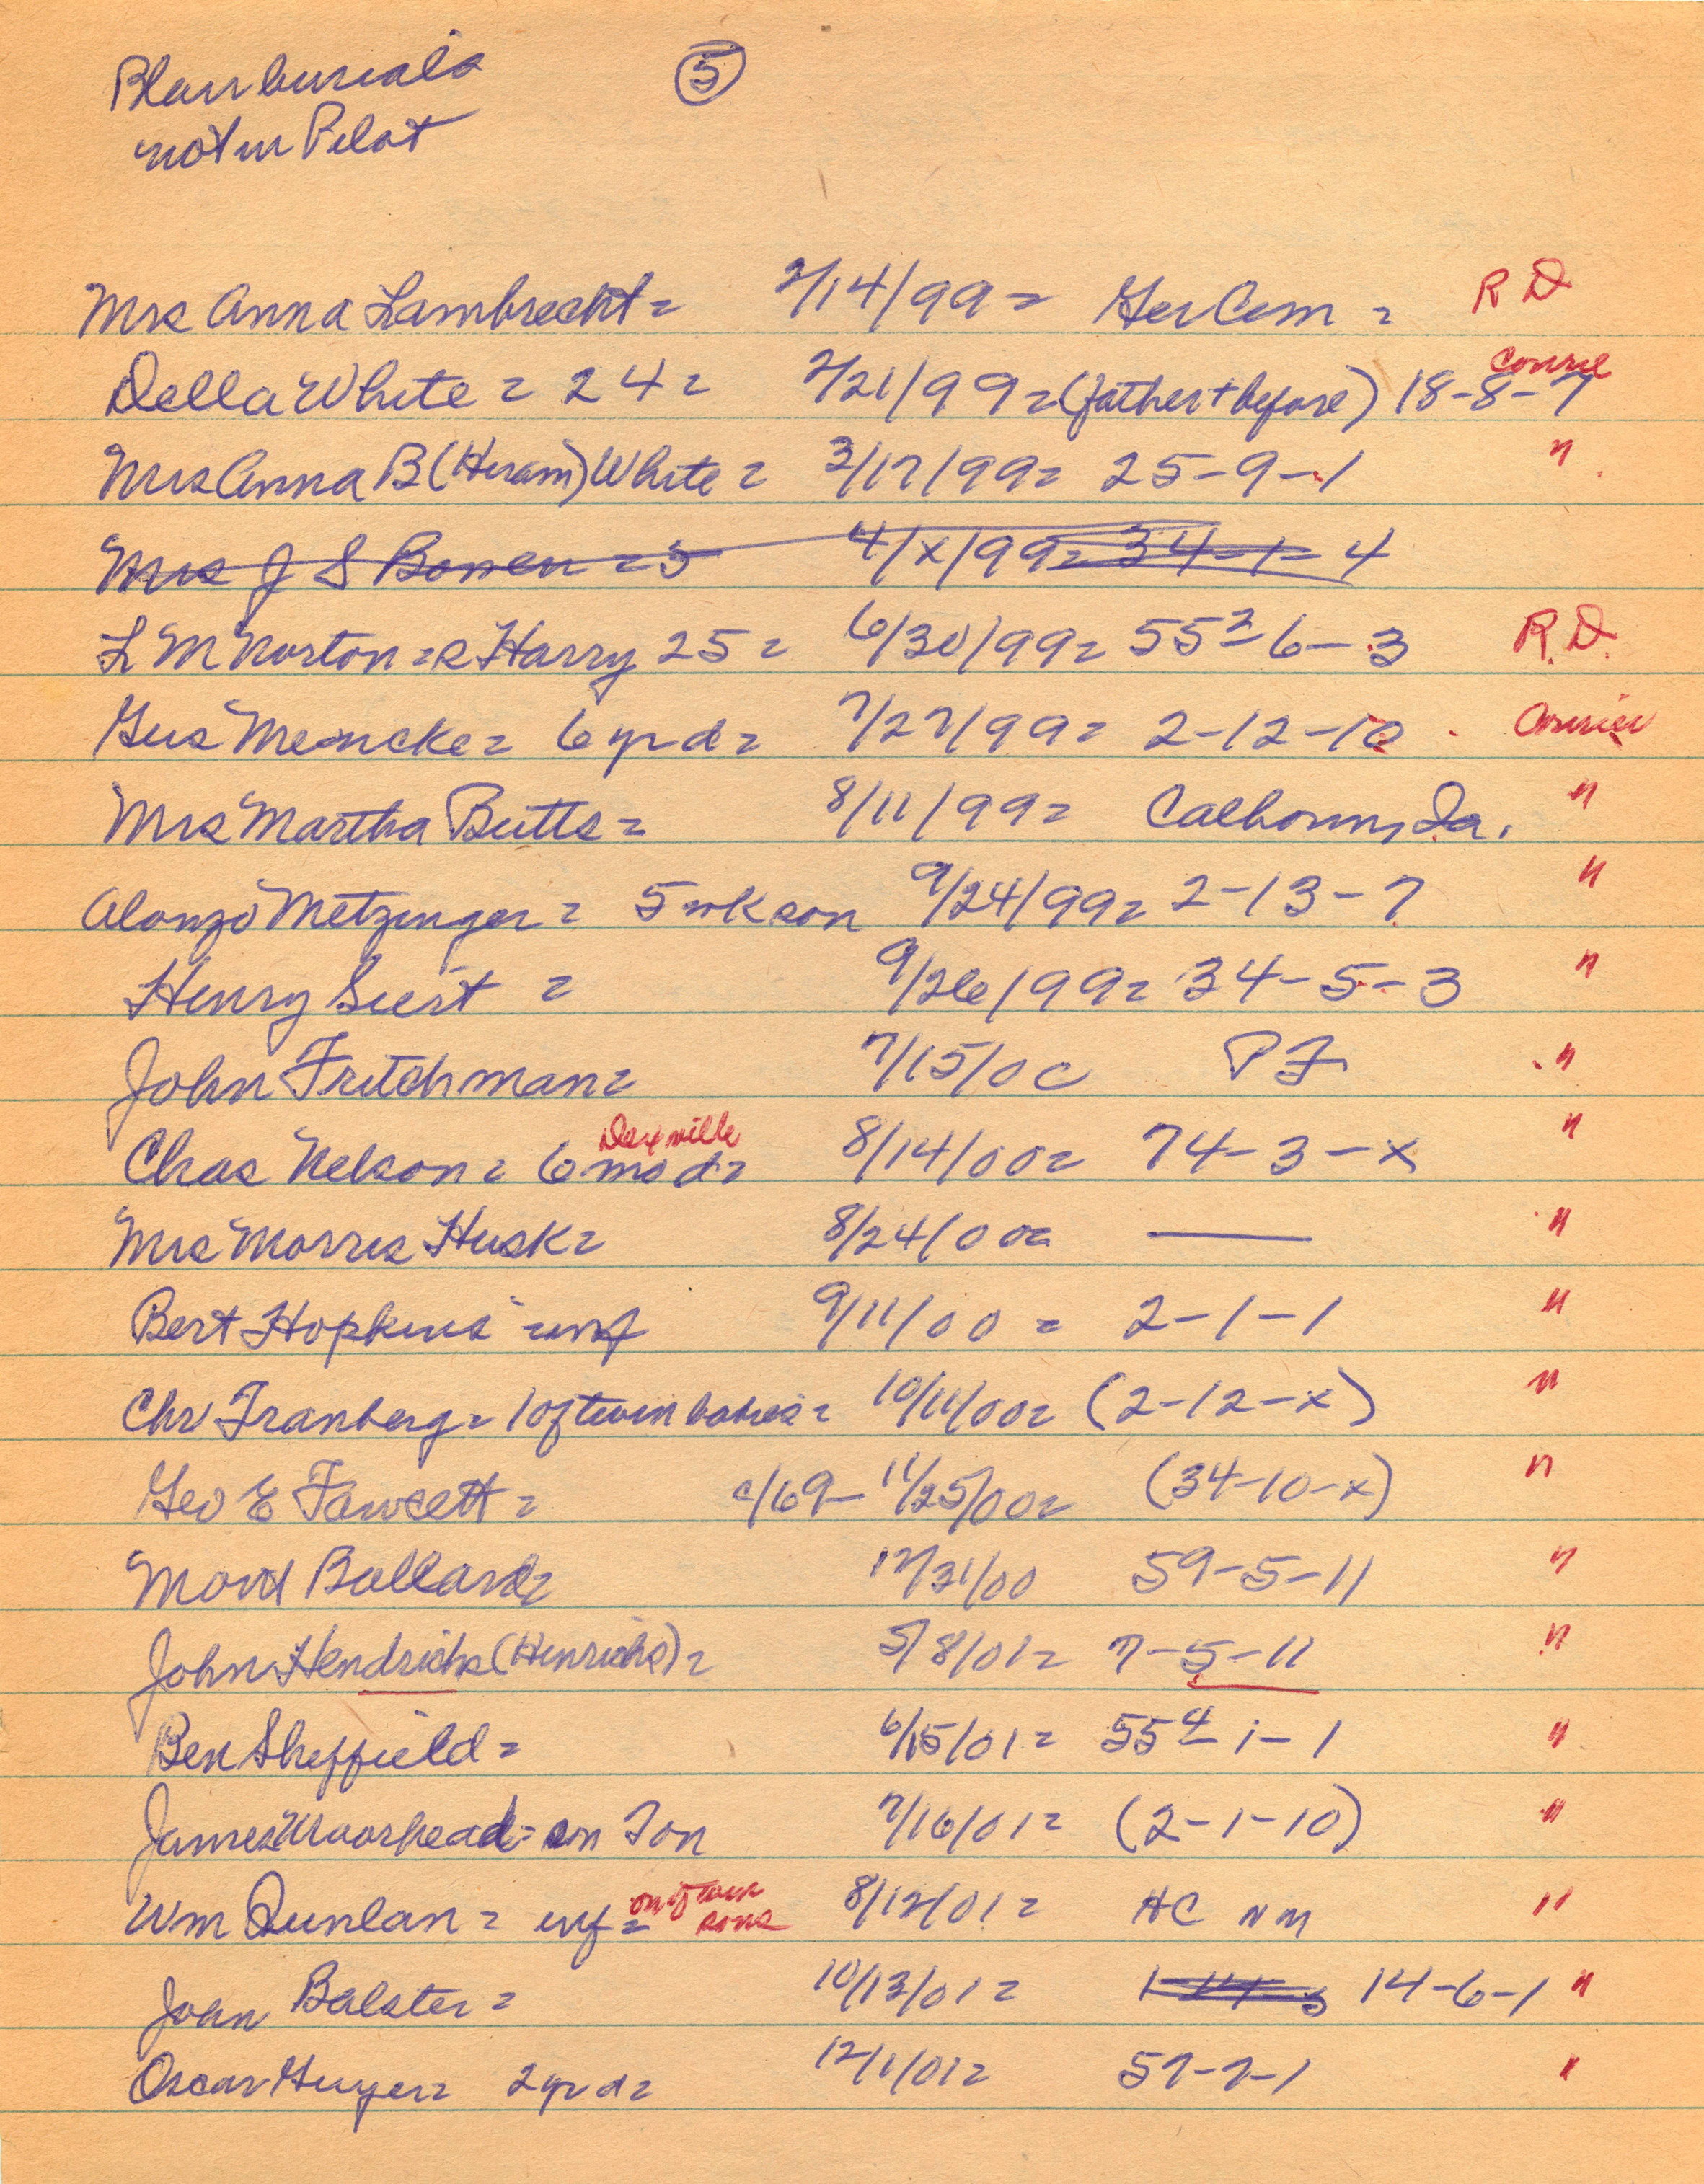 Blair burials ⑤
not in Pilot
R D
Mrs Anna Lambrecht = 2/14/99 = Ger Cem =
Courie
Della White = 24 = 2/21/99 = (father + before) 18-8-7
Mrs Anna B (Hiram) White = 3/17/99 = 25-9-1 "
Mrs J S Bowen = 3 4/x/99 = 34-1-4
L M Norton = Harry 25 = 6/30/99 = 55²-6-3 R.D.
Gus Mencke = 6 yr d = 7/27/99 = 2-12-10 Courier
Mrs Martha Butts = 8/11/99 = Calhoun, Ia. "
Alonzo Metzinger = 5 wk son 9/24/99 = 2-13-7 "
Henry Siert = 9/26/99 = 34-5-3 "
John Fritchman = 7/15/00 PF "
Chas Nelson = 6 mo d = 8/14/00 = 74-3-x "
Mrs Morris Husk = 8/24/00 = — "
Bert Hopkins inf 9/11/00 = 2-1-1 "
Chr Franberg = 1 of twin babies = 10/11/00 = (2-12-x) "
Geo E Fawcett = c/69- 11/25/00 = (34-10-x) "
Mord Ballard = 12/31/00 59-5-11 "
John Hendrichs (Hinrichs) = 5/8/01 = 7-5-11 "
Ben Sheffield = 6/15/01 = 55⁴-1-1 "
James Moorhead = son 7/16/01 = (2-1-10) "
one of twin
Wm Quinlan = inf = sons 8/12/01 = HC NM "
John Balster = 10/13/01 = 14-6-1 "
Oscar Guyer = 2 yr d = 12/1/01 = 57-7-1 "